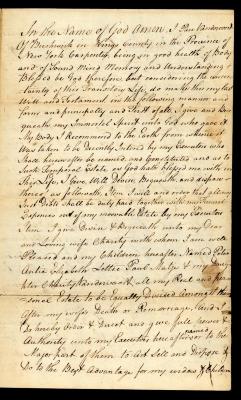 In the Name of God Amen. I
Of Bushwick in Kings County in the Province of
New York Carpenter, being in good health of Body
and of Sound Mind Memory and Understanding
Blessed be God therefore but considering the uncer-
tainty of this Transitory Life, do make this my last
Will and Testament in the following manner and
form and principally and First, I give and be-
queath my Immortal Spirit unto God who gave it
my Body I Recommend to the Earth from whence it
Was taken to be Decently Interred by my Executors who
Shall hereafter be named and Constituted and as to
Such Temporal Estate as God hath blessed me with in
this Life, I give Will Devise Bequeath and dispose
thereof as followeth, Item I will and order that all my
Just Debts shall be duly paid together with my Funeral
Expences out of my movable Estate by my Executors
Item I give Devise & Bequeath unto my Dear
and Loving wife Charity with whom I am well
Pleased and my Children hereafter Named Peter
Antie Elizabeth Lottee Paul and my Daugh
ter Charity all my Real and pers
onal Estate to be Equally Divided Amongst them
After my wife's Death or Remarriage. And I
Do hereby Order & Direct and give full power &
Authority unto my Executors hereafter named or the
Major part of them to Let Sell and Dispose &
Do to the Best Advantage for my widow & Children